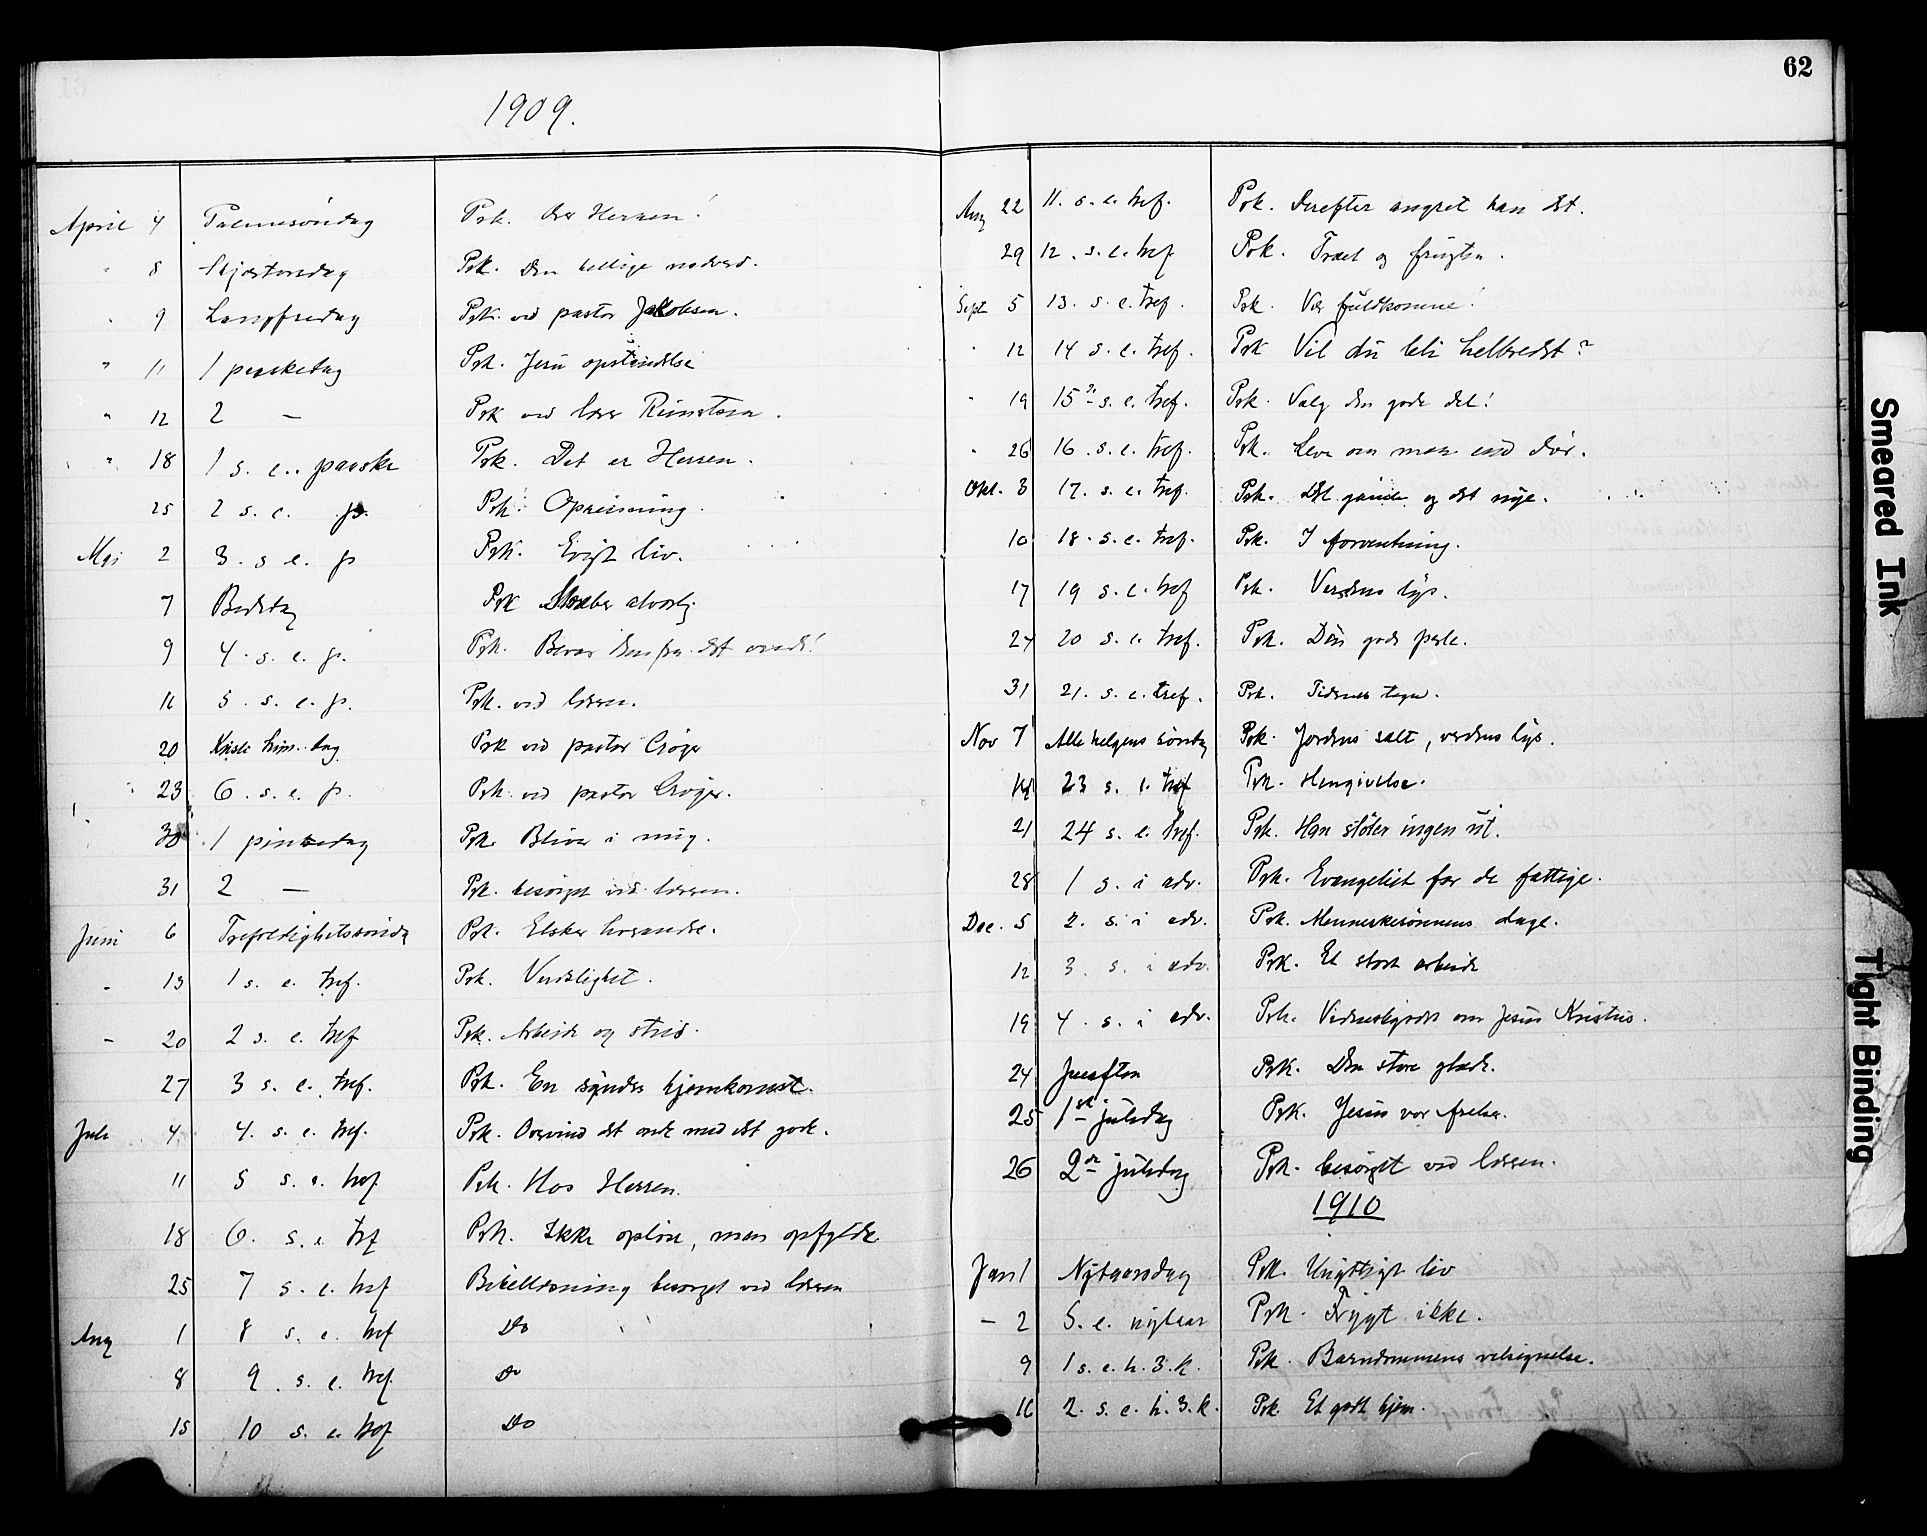 62
1909.
April 4 Palmesöndag Prk. Ser Herren!
" 8 Skjærtorsdag Prk. Den hellige nadverd.
" 9 Langfredag Prk. ved pastor Jakobsen.
" 11 1 paaskedag Prk. Jesu opstandelse
" 12 2 — Prk ved lærer
" 18 1 s. e. paaske Prk. Det er Herren.
25 2 s. e. p. Prk. Opreisning.
Mai 2 3. s e. p Prk. Evigt liv.
7 Bededag Prk Stræber alvorlig
9 4. s. e. p. Prk. Bevar dem fra det onde!
16 5. s. e. p. Prk. ved læreren.
20 Kristi him. dag Prk ved pastor Crøger
23 6. s. e. p. Prk. ved pastor Crøger.
30 1 pinsedag Prk. Bliver i mig.
31 2 — Prk. besörget ved læreren.
Juni 6 Trefoldighetssöndg Prk. Elsker hverandre.
" 13 1 s. e. tref. Prk. Verdslighet.
" 20 2 s. e. tref Prk. Arbeide og strid.
27 3 s. e. tref. Prk. En synders hjemkomst.
Juli 4 4. s. e. tref. Prk. Overvind det onde med det gode.
11 5 s. e. tref Prk. Hos Herren.
18 6. s. e tref Prk. Ikke opløse, men opfylde
25 7 s. e. tref Bibellæsning besorget ved læreren
Aug 1 8 s. e. tref Do
8 9. s. e. tref Do
15 10 s. e. tref Do
Aug 22 11. s. e. tref. Prk. Derefter angret han det.
29 12. s. e. tref Prk. Træet og frugten.
Sept 5 13. s. e. tref. Prk. Vær fuldkomne!
" 12 14 s. e. tref. Prk Vil du bli helbredet?
" 19 15de s. e. tref. Prk. Valg den gode del!
" 26 16. s. e. tref. Prk. Leve om man end dör.
Okt. 3 17. s. e. tref. Prk. Det gamle og det nye.
10 18. s. e. tref. Prk. I forventning.
17 19 s. e. tref Prk. Verdens lys.
24 20 s. e. tref. Prk. Den gode perle.
31 21. s. e. tref. Prk. Tidernes tegn.
Nov 7 Alle helgens söndag Prk. Jordens salt, verdens lys.
14 23 s. e. tref Prk. Hengivelse.
21 24 s. e. tref. Prk. Han støter ingen ut.
28 1 s. i adv. Prk. Evangeliet for de fattige.
Dec. 5 2. s. i adv. Prk. Menneskesönnens dage.
12 3. s. i adv. Prk. Et stort arbeide
19 4. s. i adv. Prk. Vidnesbyrdet om Jesus Kristus.
24 Juleaften Prk. Den store glæde.
25 1ste juledag Prk. Jesus vor frelser.
26 2de juledag Prk. besörget ved læreren.
1910
Jan 1 Nytaarsdag Prk. Unyttigt liv
— 2 S. e. nytaar Prk. Frygt ikke.
9 1 s. e. h. 3. k. Prk. Barndommens velsignelse.
16 2. s. e. h. 3. k. Prk. Et godt hjem.
Smeared Ink
Tight Binding